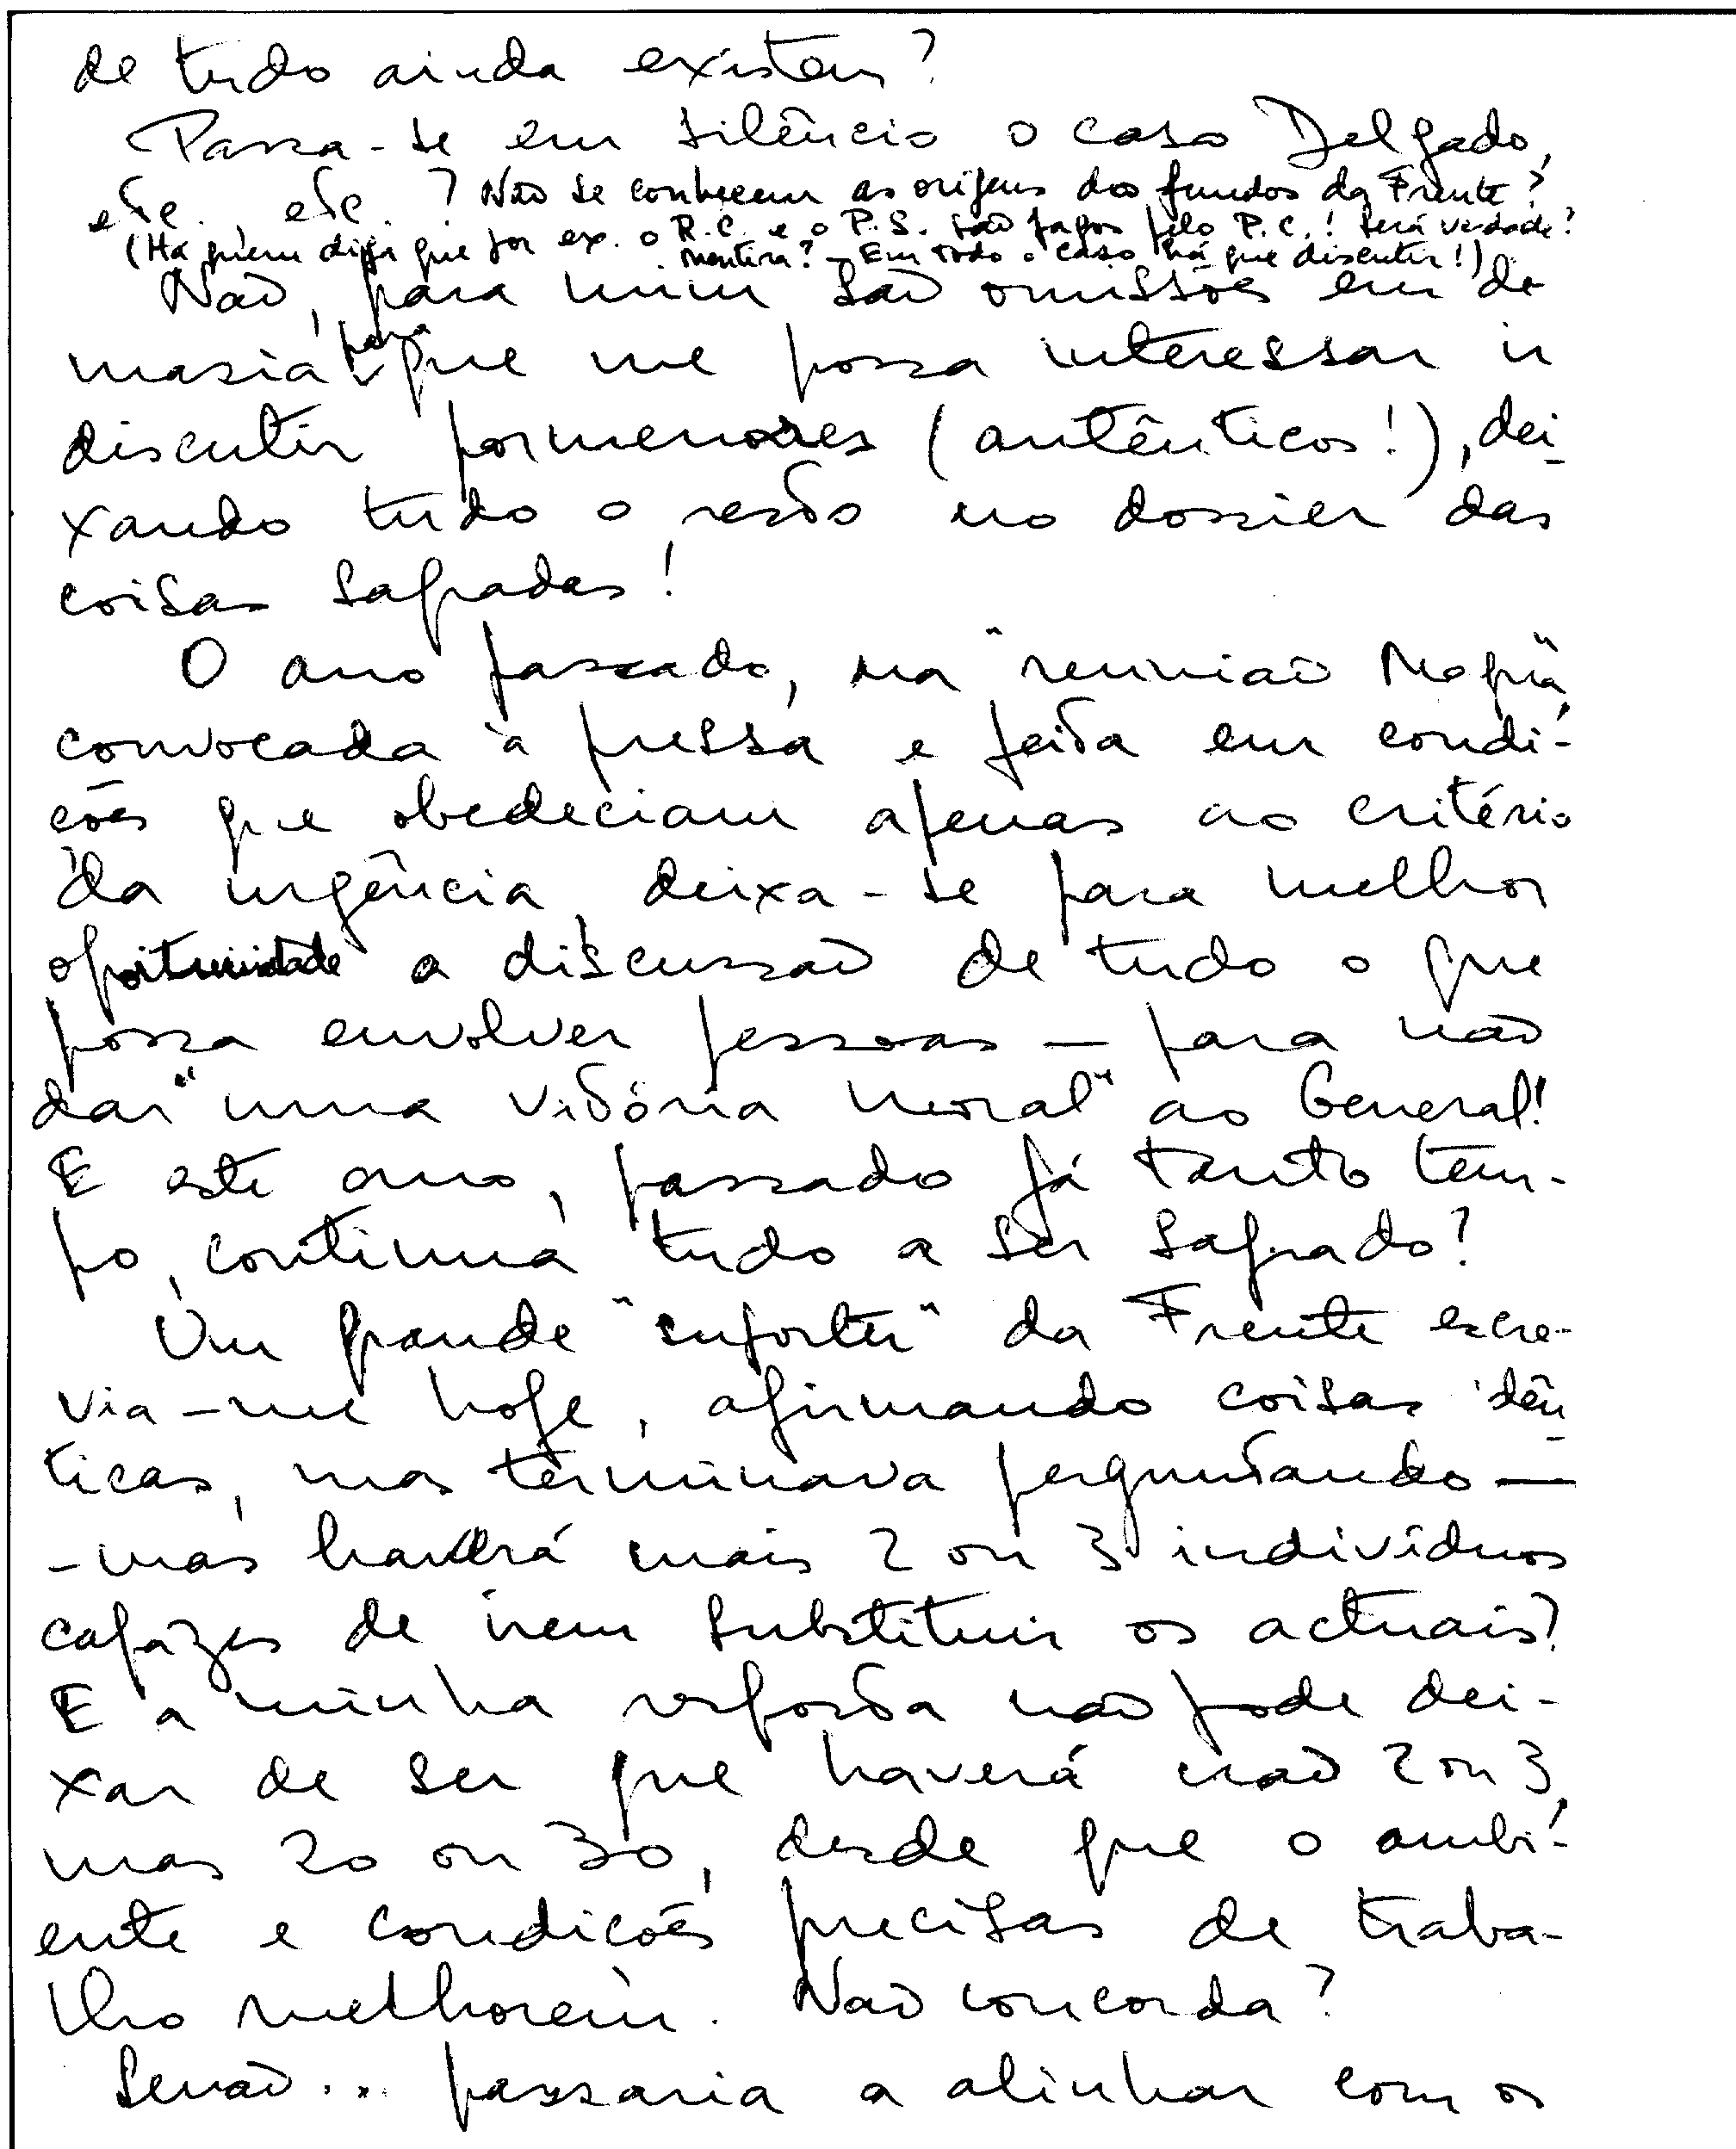 de tudo ainda existem?
Passa-se em silêncio o caso Delgado,
etc., etc.? Não se conhecem as origens dos fundos da Frente?
(Há quem diga que por ex. o R.C. e o P.S. são pagos pelo P.C.! Será verdade?
mentira? - Em todo o caso há que discutir!)
Não, para mim são omissões em de
masia para que me possa interessar ir
discutir pormenores (autênticos!), dei-
xando tudo o resto no dossier das
coisas sagradas!
O ano passado, na "reunião Magna",
convocada à pressa e feita em condi-
ções que obedeciam apenas ao critério
da urgência, deixa-se para melhor
oportunidade a discussão de tudo o que
possa envolver pessoas — para não
dar "uma vitória moral" ao General!
E este ano, passado já tanto tem-
po, continua tudo a ser sagrado?
Um grande "suporter" da Frente escre-
via-me hoje, afirmando coisas idên-
ticas, mas terminava perguntando —
-mas haverá mais 2 ou 3 indivíduos
capazes de irem substituir os actuais?
E a minha resposta não pode dei-
xar de ser que haverá não 2 ou 3,
mas 20 ou 30, desde que o ambi-
ente e condições precisas de traba-
lho melhorem. Não concorda?
Senão... passaria a alinhar com os